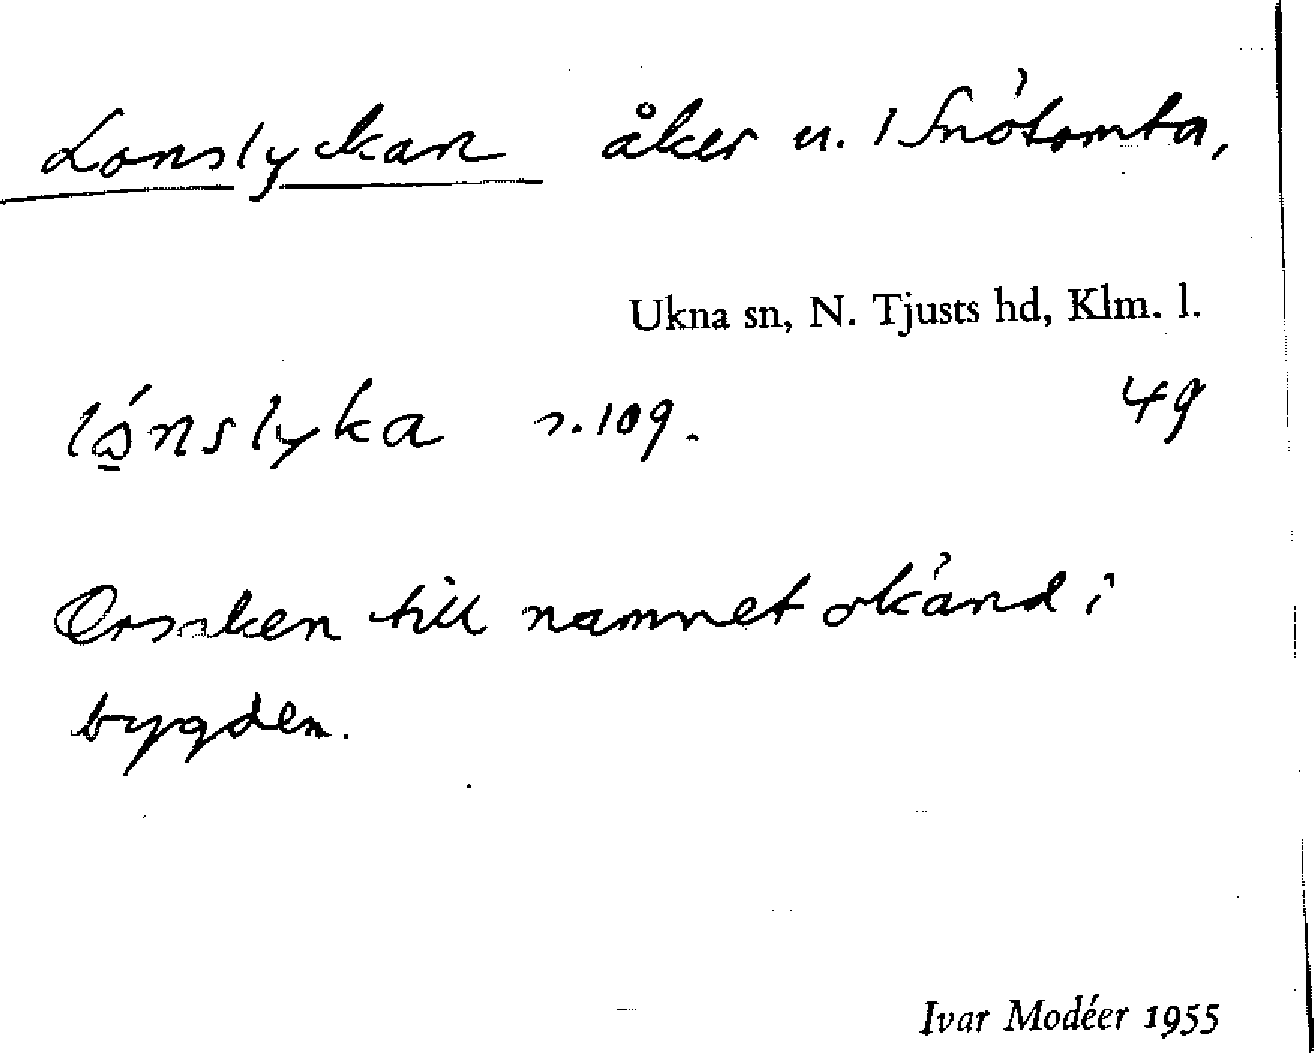 Lonslyckan åker u. 1 Snötomta,
Ukna sn, N. Tjusts hd, Klm. l.
lo̱nslyka s. 109. 49
Orsaken till namnet okänd i
bygden.
Ivar Modéer 1955